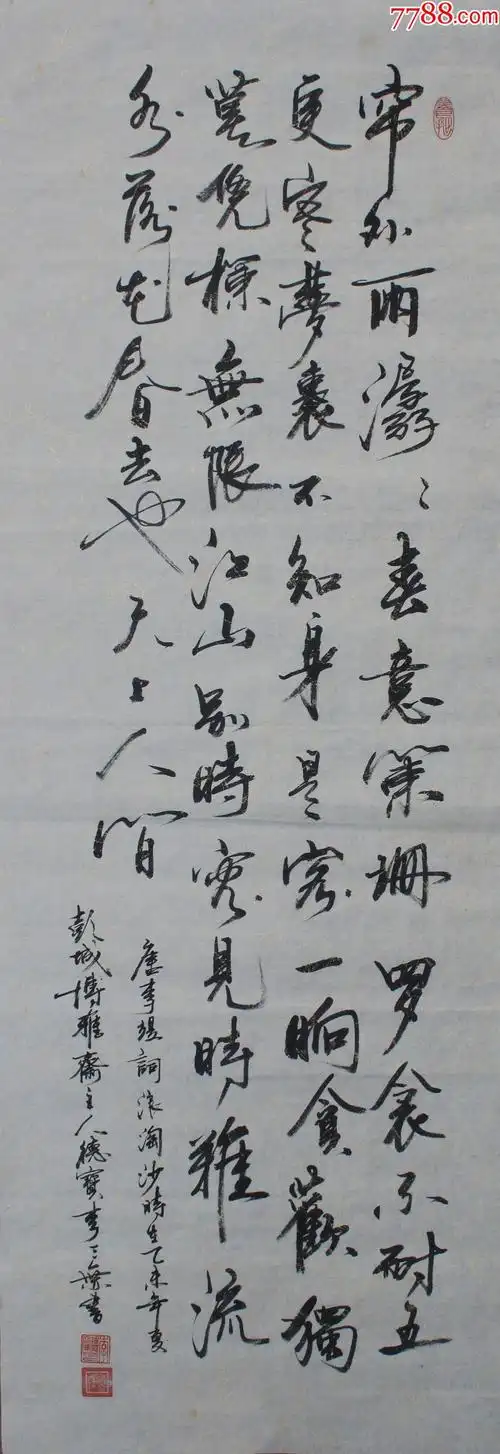 7788.com
帘外雨潺〻春意闌珊罗衾不耐五
更寒夢裏不知身是客一晌貪歡獨
莫凭欄無限江山别時容見時難流
水落花春去也天上人間
唐李煜詞浪淘沙時在乙未年夏
彭城博雅齋主人德寶李書